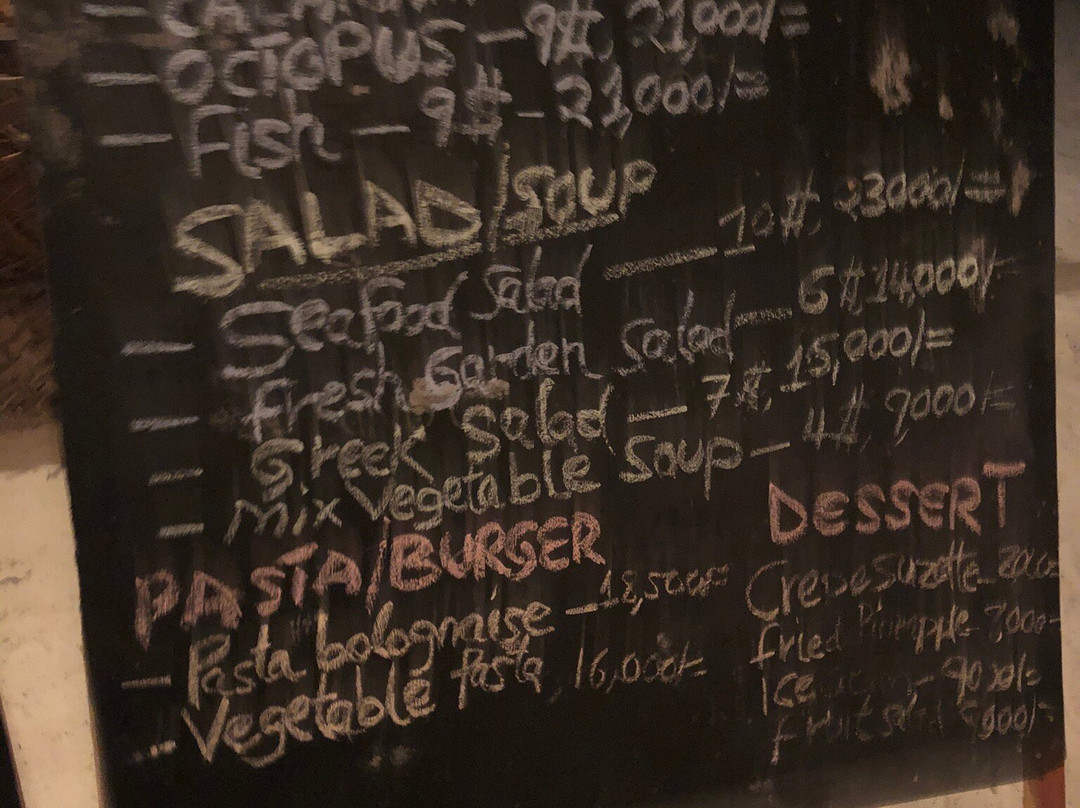 - OCTOPUS - 9$, 21,000/=
- Fish - 9$ - 21,000/=
SALAD/SOUP
- Seafood Salad — 10$, 23000/=
- Fresh Garden Salad — 6$ 14,000/=
- Greek Salad — 7$, 15,000/=
- Mix Vegetable Soup - 4$, 9000/=
PASTA/BURGER
- Pasta bolognaise - 18,500/=
- Vegetable Pasta, 16,000/=
DESSERT
Crepe Suzette -
Fried Pinnapple - 7000
Ice - 9000/=
Fruit salad 9000/=